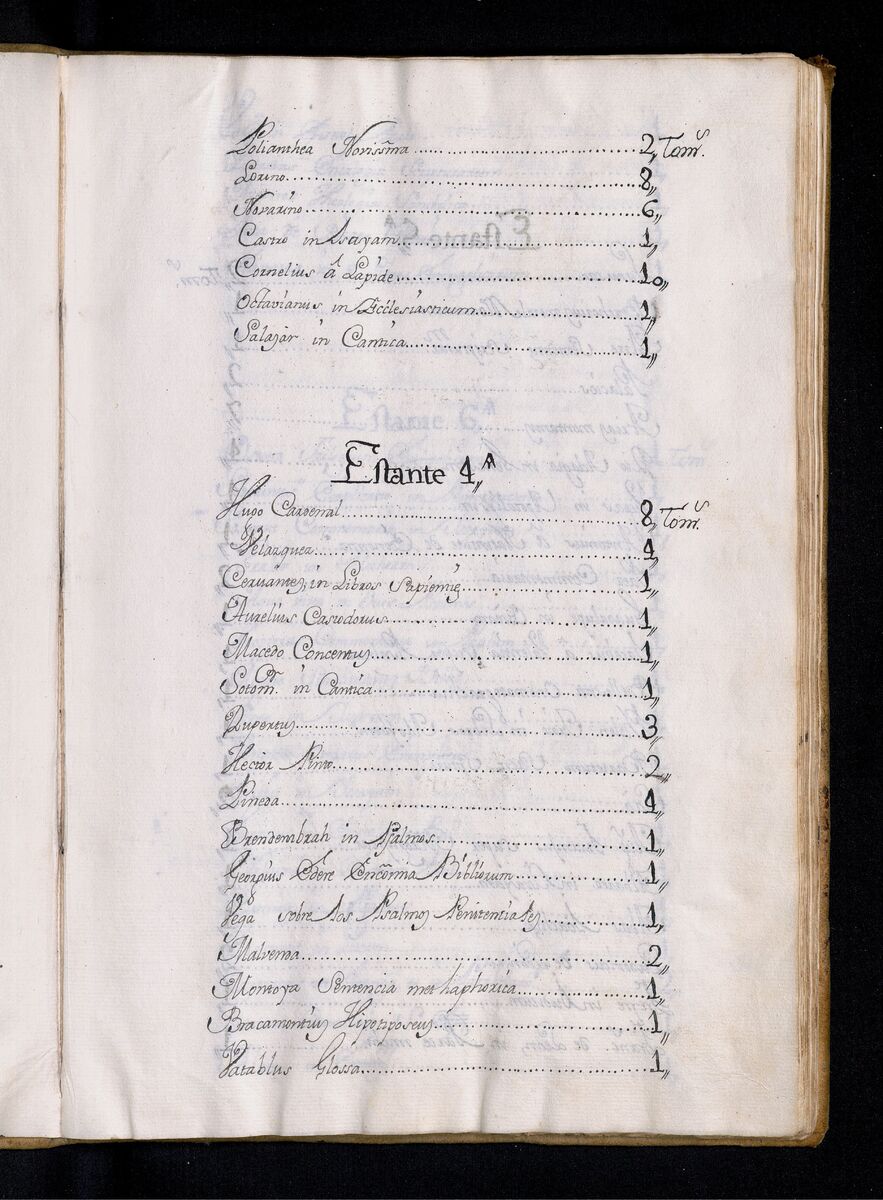 Polianthea Novissma 2,, Tom.s
Lorino 8,,
Novarino 6,,
Castro in Isayam 1,,
Cornelius â Lapide 10,,
Octavianus in Ecclesiasticum 1,,
Salazar in Cantica 1,,
Estante 4,,ᴬ
Hugo Cardenal 8,, Tom.s
Velazquez 4,,
Cervantes, in Libros Sapientiȩ 1,,
Aurelius Casiodorus 1,,
Macedo Concentus 1,,
Sotom.or in Cantica 1,,
Rupertus 3,,
Hector Pinto 2,,
Pineda 4,,
Brendembrah in Psalmos 1,,
Georgius Ebere Encomia Bibliorum 1,,
Vega sobre los Psalmos Penitentiales 1,,
Malvenda 2,,
Montoya Sentencia methaphorica 1,,
Bracamontius Hipotiposeus 1,,
Vatablus Glossa 1,,